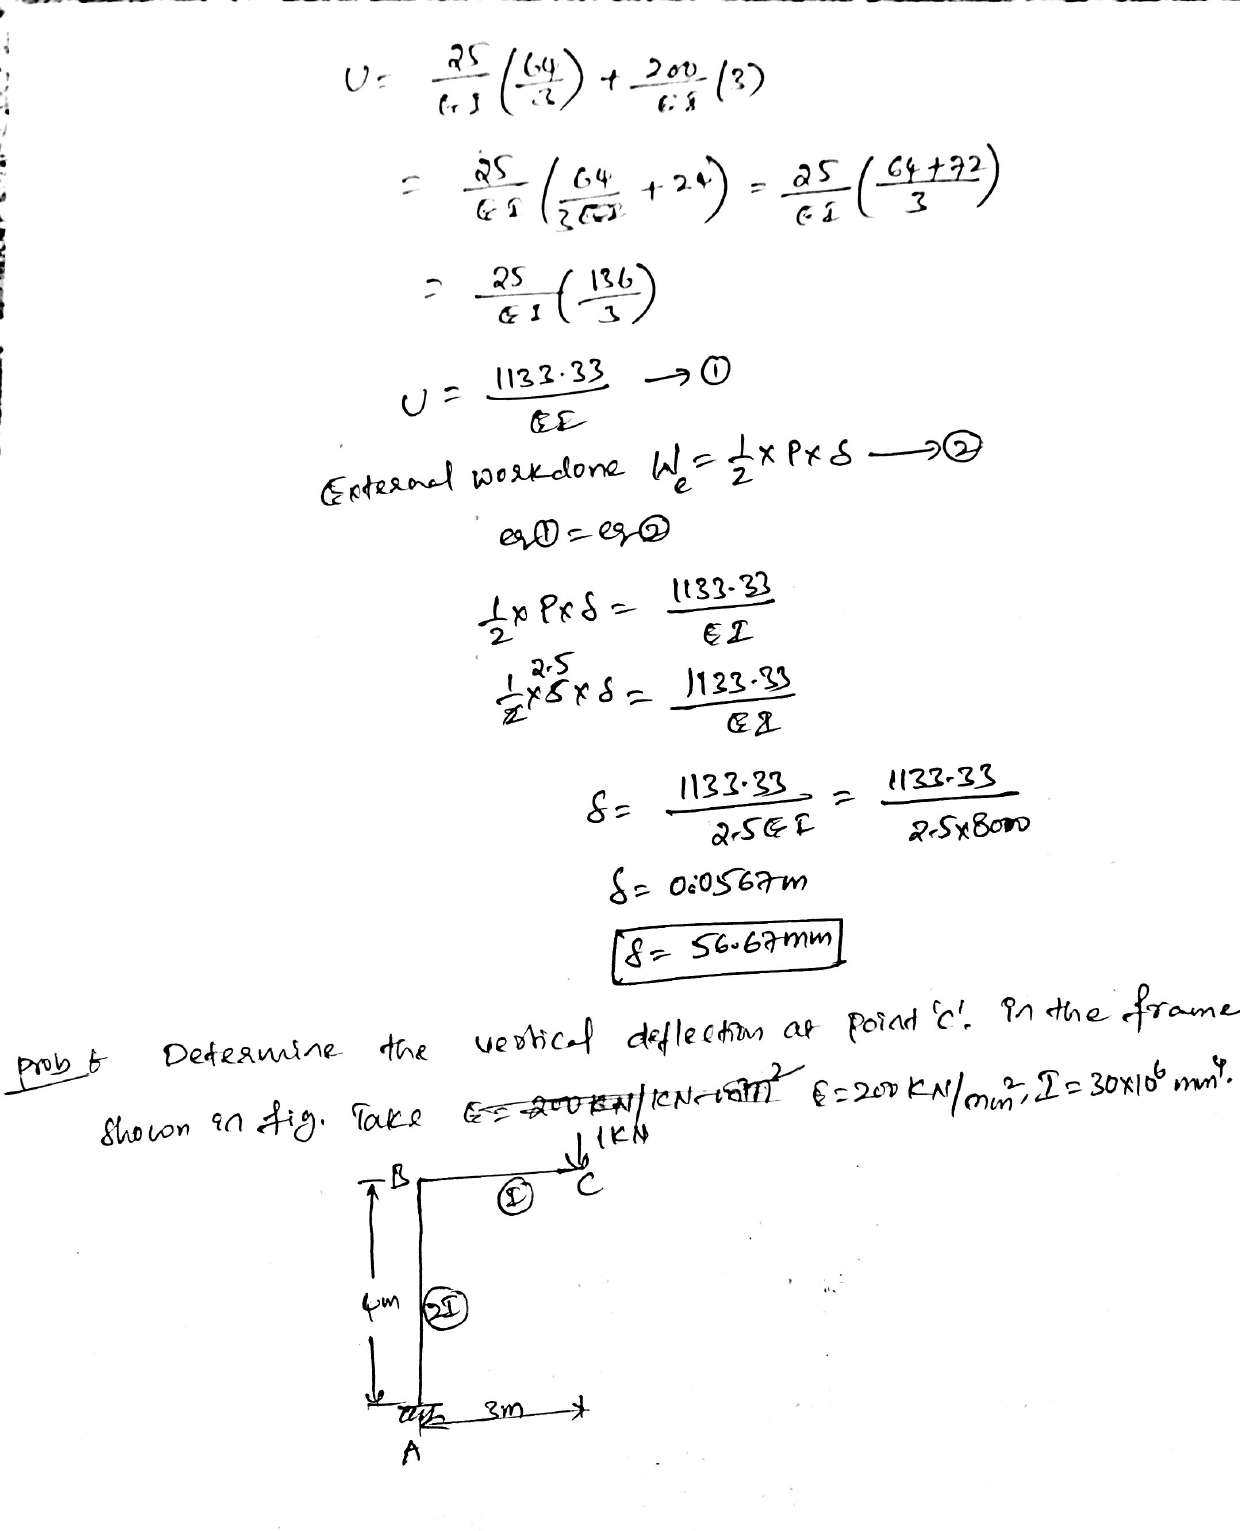 U = 25/EI (64/3) + 200/EI (3)
= 25/EI (64/3EI + 24) = 25/EI (64+72/3)
= 25/EI (136/3)
U = 1133.33/EI → ①
External workdone We = 1/2 x P x δ → ②
eq① = eq②
1/2 x P x δ = 1133.33/EI
2.5
1/2 x 5 x δ = 1133.33/EI
δ = 1133.33/2.5EI = 1133.33/2.5x8000
δ = 0.0567m
δ = 56.67mm
Determine the vertical deflection at point 'C'. in the frame
shown in fig. Take E = 200 KN/mm², I = 30x10⁶ mm⁴.
1KN
B
I
C
4m
2I
3m
A